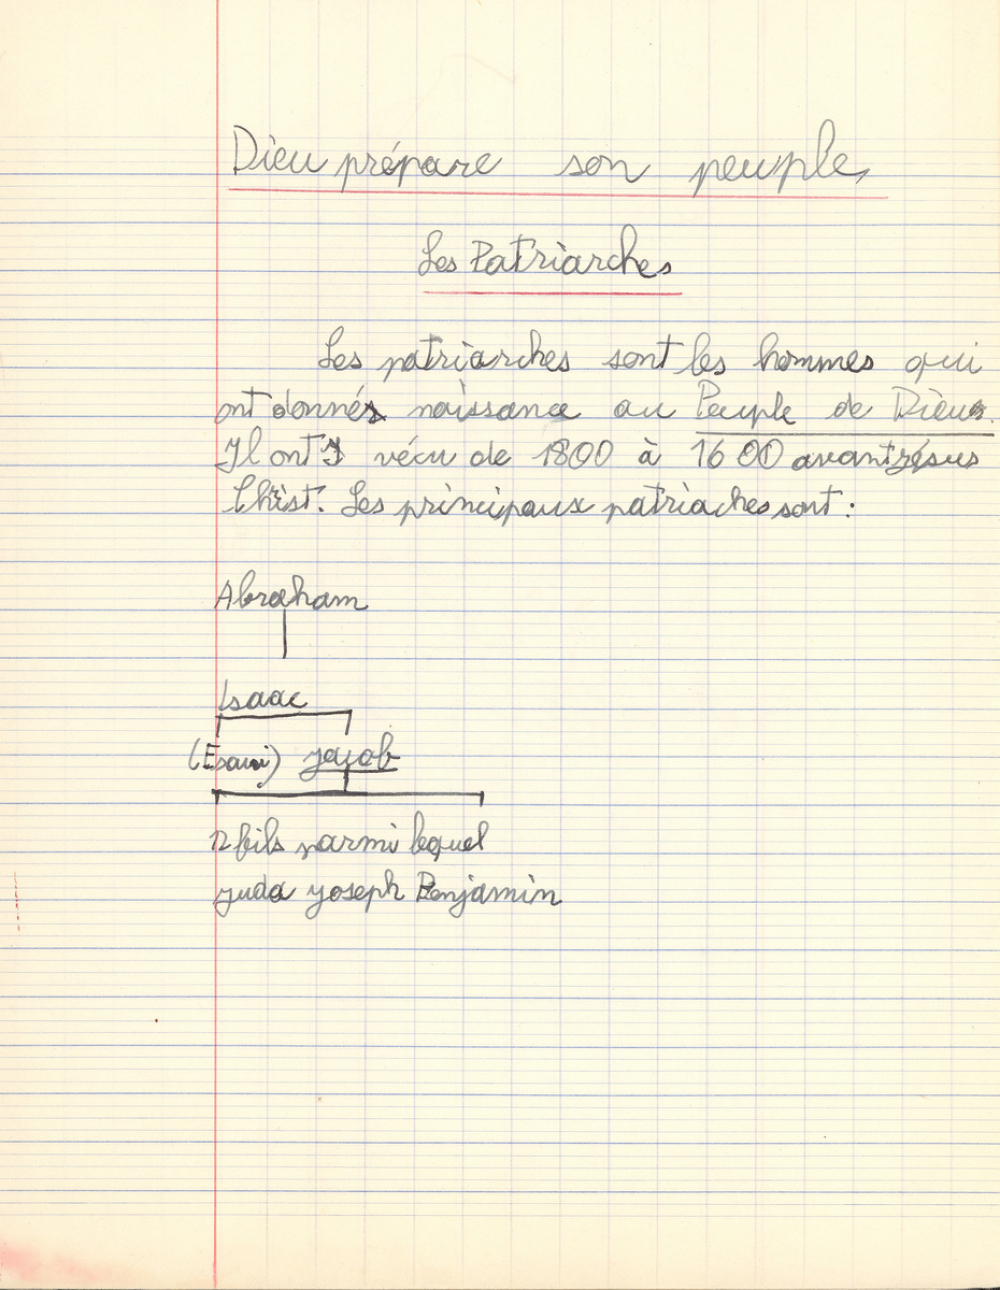 Dieu prépare son peuple
Les Patriarches
Les patriarches sont les hommes qui
ont donnés naissance au Peuple de Dieu.
Il ont vécu de 1800 à 1600 avant Jésus
Christ. Les principaux patriaches sont :
Abraham
Isaac
(Esaü) Jacob
12 fils parmi lequel
juda joseph Benjamin